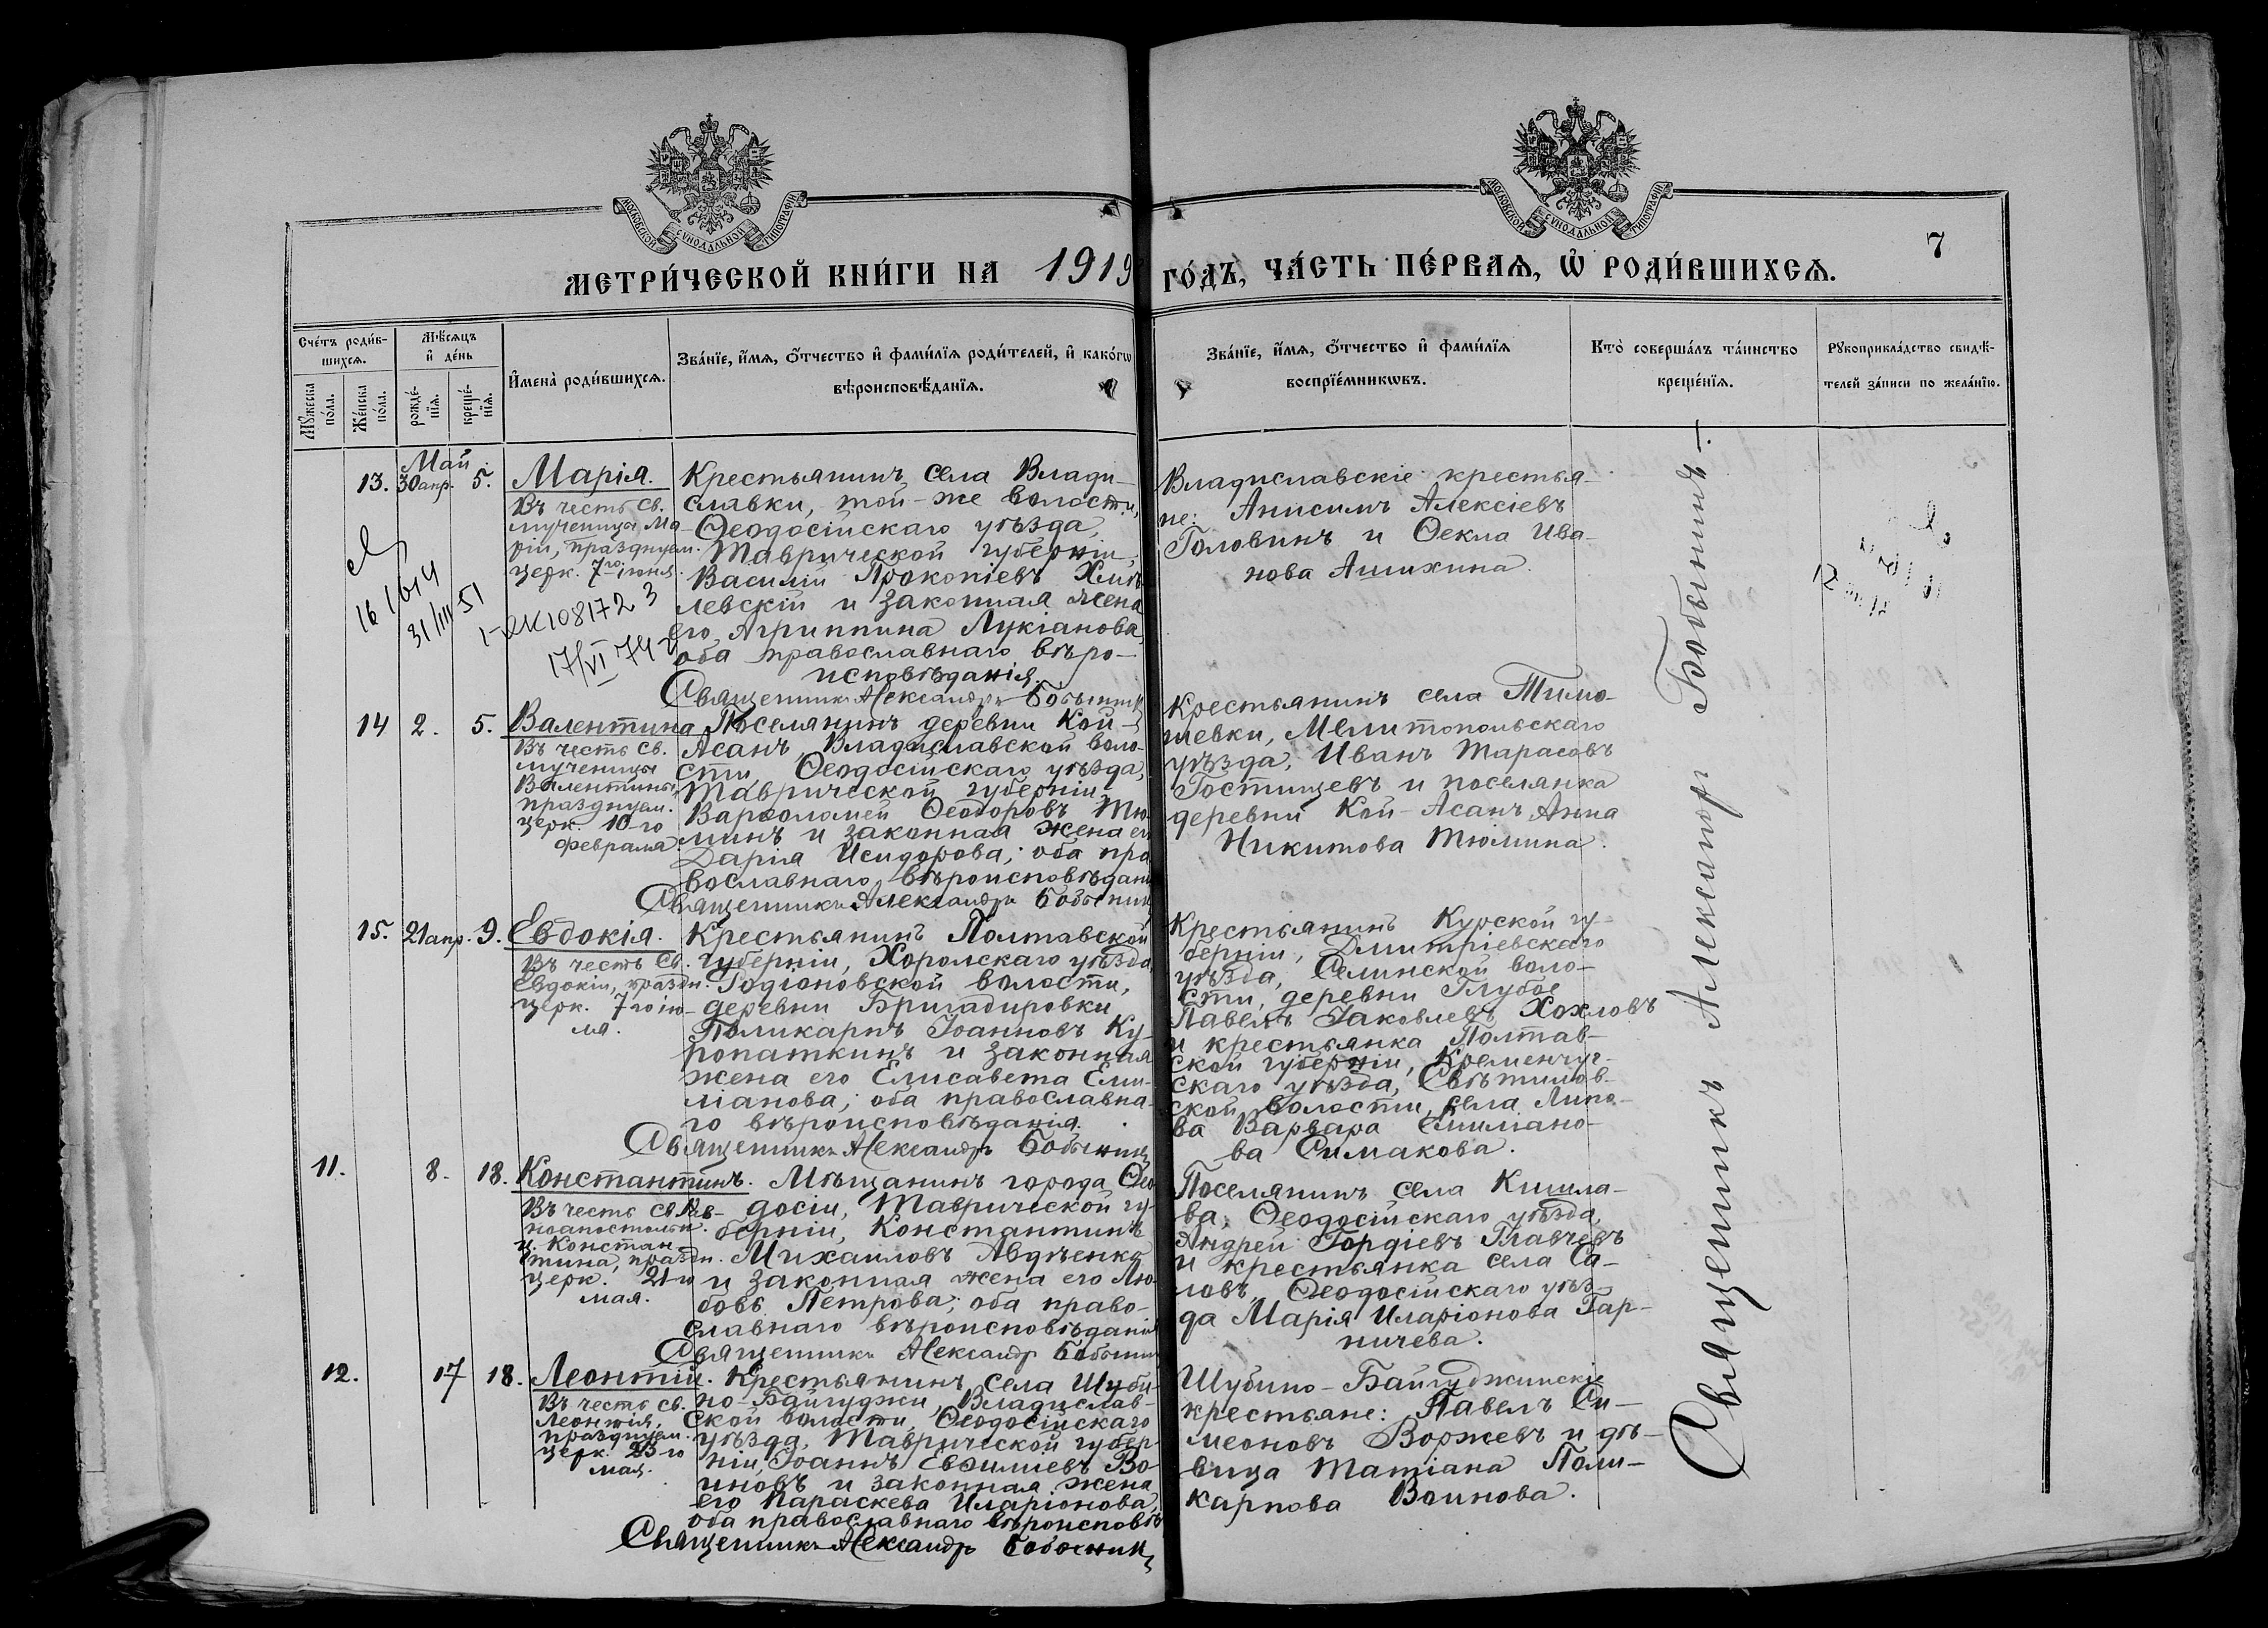 МОСКОВСКОЙ СѴНОДАЛЬНОЙ ТИПОГРАФІИ
МОСКОВСКОЙ СѴНОДАЛЬНОЙ ТИПОГРАФІИ
7
МЕТРИ́ЧЕСКОЙ КНИ́ГИ НА 1919 ГО́ДЪ, ЧА́СТЬ ПЕ́РВАѦ, Ѡ РОДИ́ВШИХСѦ.
Сче́тъ роди́в-
шихсѧ.
Мѣ́сѧцъ
и҆ де́нь
Мꙋ́жеска
по́ла.
Же́нска
по́ла.
рожде́-
нїѧ.
креще́-
нїѧ.
И҆мена̀ роди́вшихсѧ.
Зва́нїе, и҆́мѧ, ѻ҆́тчество и҆ фами́лїѧ роди́телей, и҆ како́гѡ
вѣроисповѣ́данїѧ.
Зва́нїе, и҆́мѧ, ѻ҆́тчество и҆ фами́лїѧ
воспрїе́мникѡвъ.
Кто̀ соверша́лъ та́инство
креще́нїѧ.
Рꙋкоприкла́дство свидѣ́-
телей за́писи по жела́нїю.
Май
13. 30 апр. 5.
Марія.
Въ честь св.
мученицы Ма-
ріи, празднуем.
церк. 7го іюня.
16 1614
31/III 51
1-ЯК 108172 3
17/VI 74
Крестьянинъ села Влади-
славки, той-же волости,
Ѳеодосійскаго уѣзда,
Таврической губерніи
Василій Прокопіевъ
левскій и законная жена
его Агриппина Лукіанова,
оба православнаго вѣро-
исповѣданія.
Священникъ Александръ Бобынинъ
Владиславскіе крестья-
не: Анисимъ Алексіевъ
Головинъ и Ѳекла Ива-
нова Анихина.
14 2. 5.
Валентина
Въ честь св.
мученицы
Валентины,
празднуем.
церк. 10-го
февраля
Поселянинъ деревни Кой-
Асанъ, Владиславской воло-
сти Ѳеодосійскаго уѣзда,
Таврической губерніи
Варѳоломей Ѳеодоровъ Тю-
минъ и законная жена ег
Дарія Исидорова; оба пра
вославнаго вѣроисповѣдані
Священникъ Александръ Бобынин
Крестьянинъ села Тимо-
шевки, Мелитопольскаго
уѣзда, Иванъ Тарасовъ
Гостищевъ и поселянка
деревни Кой-Асанъ Анна
Никитова Тюмина.
15. 21 апр. 9.
Евдокія.
Въ честь св.
Евдокіи, праздн.
церк. 7 го ію-
ля.
Крестьянинъ Полтавской
губерніи, Хорольскаго уѣзда
Родіоновской волости,
деревни Бригадировки
Поликарпъ Іоанновъ Ку-
ропаткинъ и законная
жена его Елисавета Еми-
ліанова; оба православна-
го вѣроисповѣданія.
Священникъ Александръ Бобынинъ
Крестьянинъ Курской гу-
берніи, Дмитріевскаго
уѣзда, Селинской воло-
сти, деревни Глубое
Павелъ Іаковлевъ Хохловъ
и крестьянка Полтав-
ской губерніи, Кременчуг-
скаго уѣзда,
ской волости, села Липо-
ва Варвара Емиліано-
ва Симакова.
11. 8. 18.
Константинъ.
Въ честь св. Рав-
ноапостольн.
ц. Констан-
тина, праздн.
церк. 21-го
мая.
Мѣщанинъ города Ѳео
досіи, Таврической гу-
берніи, Константинъ
Михаиловъ Авдѣенко
и законная жена его Лю-
бовь Петрова; оба право-
славнаго вѣроисповѣданія
Священникъ Александръ Бобынин
Поселянинъ села Кишла-
ва, Ѳеодосійскаго уѣзда,
Андрей Гордіевъ Главчевъ
и крестьянка села Са-
ловъ, Ѳеодосійскаго уѣз-
да Марія Иларіонова Гар-
ничева.
12. 17 18.
Леонтій.
Въ честь св.
Леонтія,
празднуем.
церк. 23-го
мая.
Крестьянинъ села Шуби-
но-Байгуджи, Владислав-
ской волости, Ѳеодосійскаго
уѣзда, Таврической губер-
ніи, Іоаннъ Евѳиміевъ Во-
иновъ и законная жена
его Параскева Иларіонова,
оба православнаго вѣроисповѣ
Священникъ Александръ Бобынинъ
Шубино-Байгуджинскіе
крестьяне: Павелъ Си-
меоновъ Воржевъ и дѣ-
вица Татіана Поли-
карпова Воинова.
Священникъ Александръ Бобынинъ.